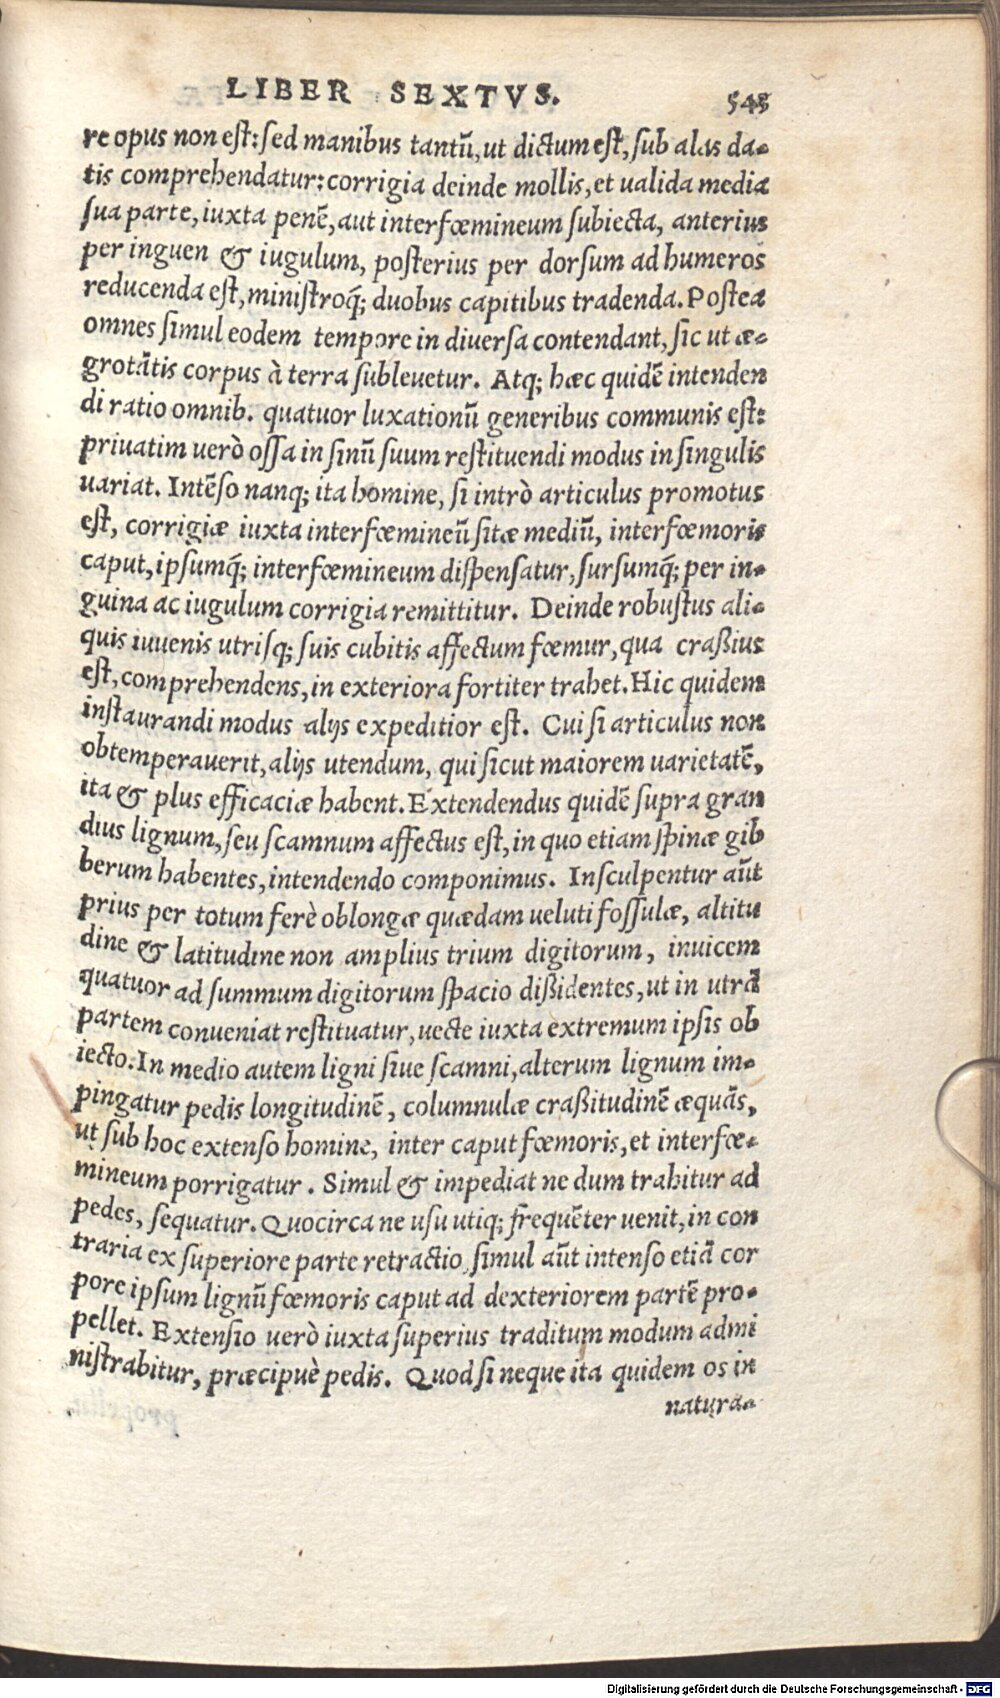 LIBER SEXTVS. 545
re opus non est: sed manibus tantũ, ut dictum est, sub alas da-
tis comprehendatur: corrigia deinde mollis, et ualida media
sua parte, iuxta penẽ, aut interfœmineum subiecta, anterius
per inguen & iugulum, posterius per dorsum ad humeros
reducenda est, ministroq́; duobus capitibus tradenda. Postea
omnes simul eodem tempore in diuersa contendant, sic ut æ-
grotãtis corpus à terra subleuetur. Atq; hæc quidẽ intenden
di ratio omnib. quatuor luxationũ generibus communis est:
priuatim uerò ossa in sinũ suum restituendi modus in singulis
uariat. Intẽso nanq; ita homine, si intrò articulus promotus
est, corrigiæ iuxta interfœmineũ sitæ mediũ, interfœmoris
caput, ipsumq́; interfœmineum dispensatur, sursumq́; per in-
guina ac iugulum corrigia remittitur. Deinde robustus ali-
quis iuuenis utrisq; suis cubitis affectum fœmur, qua craßius
est, comprehendens, in exteriora fortiter trahet. Hic quidem
instaurandi modus alijs expeditior est. Cui si articulus non
obtemperauerit, alijs utendum, qui sicut maiorem uarietatẽ,
ita & plus efficaciæ habent. Extendendus quidẽ supra gran
dius lignum, seu scamnum affectus est, in quo etiam spinæ gib
berum habentes, intendendo componimus. Insculpentur aũt
prius per totum ferè oblongæ quædam ueluti fossulæ, altitu
dine & latitudine non amplius trium digitorum, inuicem
quatuor ad summum digitorum spacio dißidentes, ut in utrã
partem conueniat restituatur, uecte iuxta extremum ipsis ob
iecto. In medio autem ligni siue scamni, alterum lignum im-
pingatur pedis longitudinẽ, columnulæ craßitudinẽ æquãs,
ut sub hoc extenso homine, inter caput fœmoris, et interfœ-
mineum porrigatur. Simul & impediat ne dum trahitur ad
pedes, sequatur. Quocirca ne usu utiq; frequẽter uenit, in con
traria ex superiore parte retractio, simul aũt intenso etiã cor
pore ipsum lignũ fœmoris caput ad dexteriorem partẽ pro-
pellet. Extensio uerò iuxta superius traditum modum admi
nistrabitur, præcipuè pedis. Quod si neque ita quidem os in
natura-
Digitalisierung gefördert durch die Deutsche Forschungsgemeinschaft - DFG